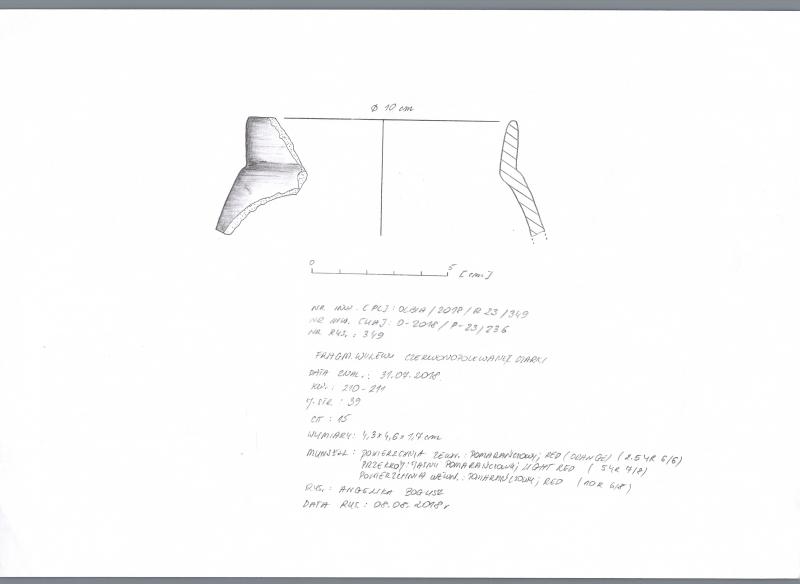 Ø 10 cm
0 5 [cm]
NR INW. [PL]: OLBIA / 2018 / R 23 / 349
NR INW. [UA]: O-2018 / P-23 / 236
NR RYS. : 349
FRAGM. WYLEWU CZERWONOPOLEWANEJ CZARKI
DATA ZNAL. : 31.07.2018
KW. : 210-211
J. STR : 39
CM : 15
WYMIARY: 4,3 x 4,6 x 1,7 cm
MUNSELL : POWIERZCHNIA ZEWN. : POMARAŃCZOWY; RED (ORANGE) (2.5 YR 6/6)
PRZEKRÓJ: JASNY POMARAŃCZOWY; LIGHT RED ( 5 YR 7/8)
POWIERZCHNIA WEWN. : POMARAŃCZOWY; RED (10 R 6/8)
RYS. : ANGELIKA BOGUSZ
DATA RYS. : 08.08.2018r